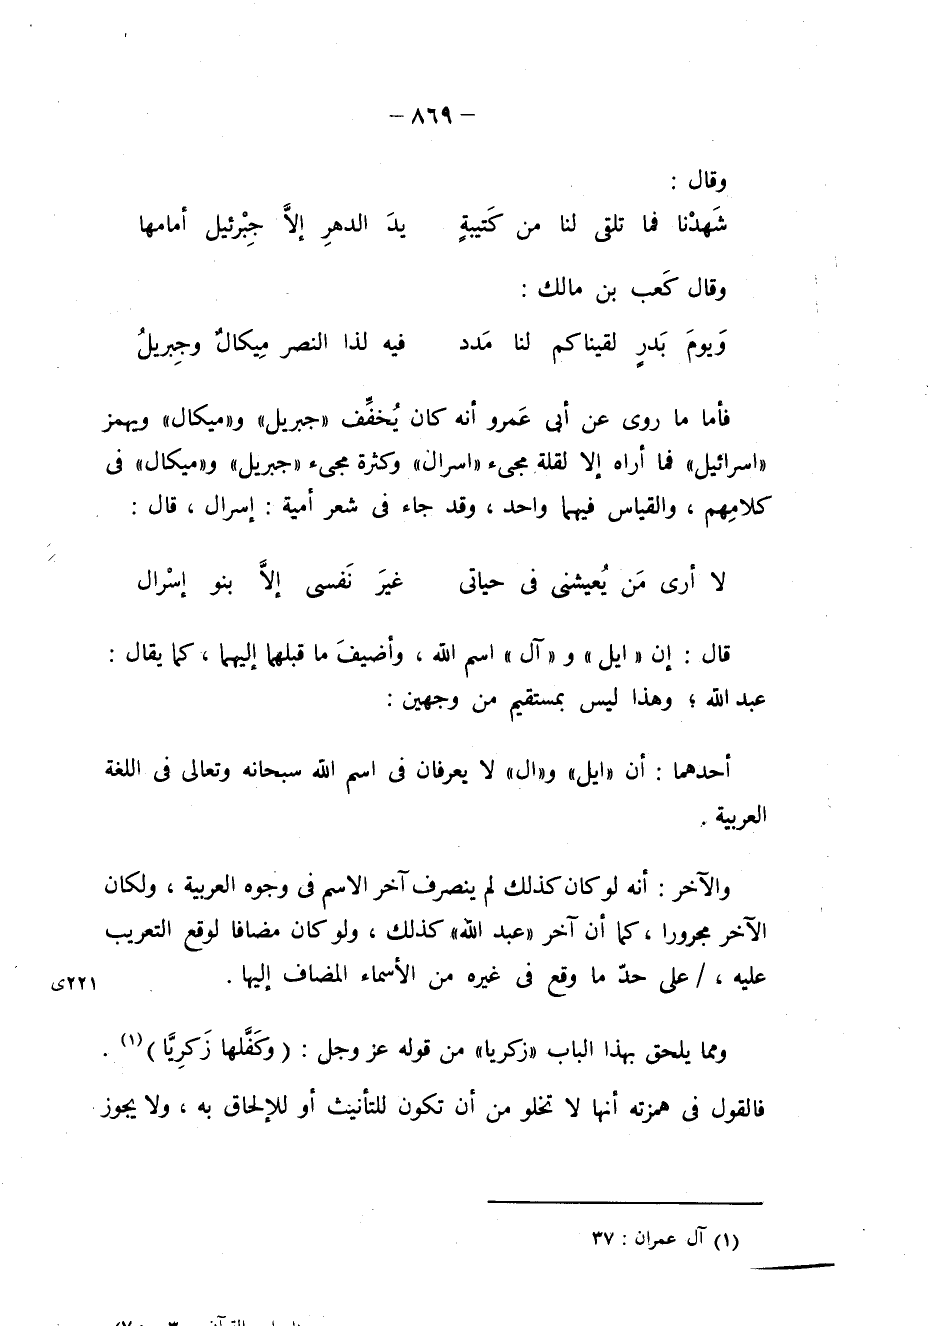 — ٨٦٩ —
وقال :
شَهدْنا فما تلقى لنا من كَتيبةٍ يدَ الدهرِ إلاَّ جِبْرئيل أمامها
وقال كَعب بن مالك :
وَيومَ بَدرٍ لقيناكم لنا مَدد فيه لذا النصر مِيكالٌ وجِبريلُ
فأما ما روى عن أبى عَمرو أنه كان يُخفِّف «جبريل» و«ميكال» ويهمز
«اسرائيل» فما أراه إلا لقلة مجىء «اسرال» وكثرة مجىء «جبريل» و«ميكال» فى
كلامِهم ، والقياس فيهما واحد ، وقد جاء فى شعر أمية : إسرال ، قال :
لا أرى مَن يُعيشنى فى حياتى غيرَ نَفسى إلاَّ بنو إسْرال
قال : إن « ايل » و « آل » اسم الله ، وأضيفَ ما قبلها إليهما ، كما يقال :
عبد الله ؛ وهذا ليس بمستقيم من وجهين :
أحدهما : أن «ايل» و«ال» لا يعرفان فى اسم الله سبحانه وتعالى فى اللغة
العربية .
والآخر : أنه لو كان كذلك لم ينصرف آخر الاسم فى وجوه العربية ، ولكان
الآخر مجرورا ، كما أن آخر «عبد الله» كذلك ، ولو كان مضافا لوقع التعريب
عليه ، / على حدّ ما وقع فى غيره من الأسماء المضاف إليها . ٢٢١ى
ومما يلحق بهذا الباب «زكريا» من قوله عز وجل : ( وكَفَّلها زَكرِيَّا )(١) .
فالقول فى همزته أنها لا تخلو من أن تكون للتأنيث أو للإلحاق به ، ولا يجوز
(١) آل عمران : ٣٧